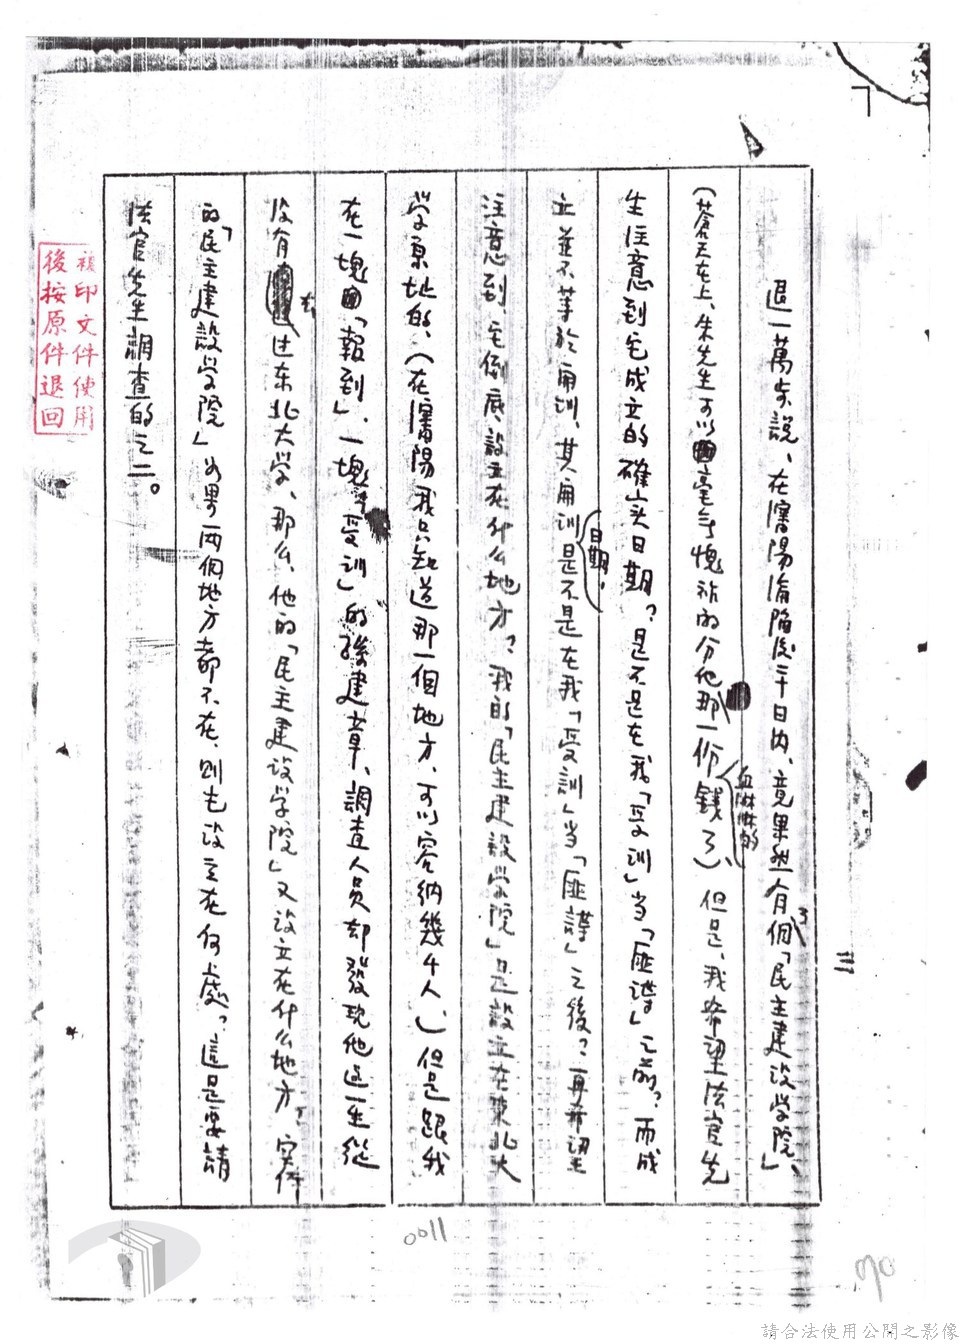 三
退一萬步說、在瀋陽淪陷後三十日內、竟果然有個了「民主建設学院」、
(蒼天在上、朱先生可以毫無愧怍的分他那一份血淋淋的錢了)、但是、我希望法官先
生注意到它成立的確实日期？是不是在我「受训」当「匪諜」之前？而成
立並不等於開训、其開训日期、是不是在我「受訓」当「匪諜」之後？再希望
注意到、它倒底設立在什么地方？我的「民主建設学院」是設立在東北大
学原地的、(在瀋陽我只知道那一個地方、可以容納幾千人、)但是跟我
在一塊「報到」、一塊「受训」的孫建章、調查人員却發現他這一生從
沒有去过东北大学、那么、他的「民主建设学院」又设立在什么地方？
的「民主建設学院」如果两個地方都不在、则它设立在何處？這是要請
法官先生調查的之二。
複印文件使用
後按原件退回
0011
90
請合法使用公開之影像